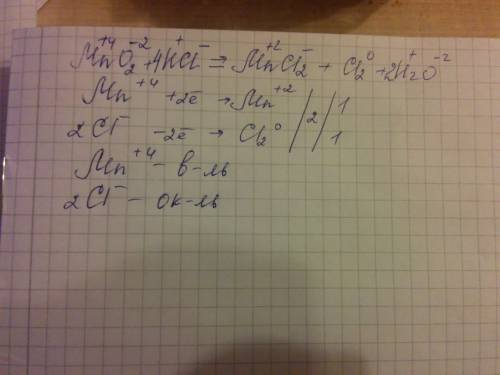 Mn⁺⁴O₂⁻² + 4H⁺Cl⁻ = Mn⁺²Cl₂⁻ + Cl₂⁰ + 2H₂⁺O⁻²
Mn⁺⁴ +2ē → Mn⁺² | 2 | 1
2Cl⁻ -2ē → Cl₂⁰ | 1
Mn⁺⁴ - в-ль
2Cl⁻ - ок-ль